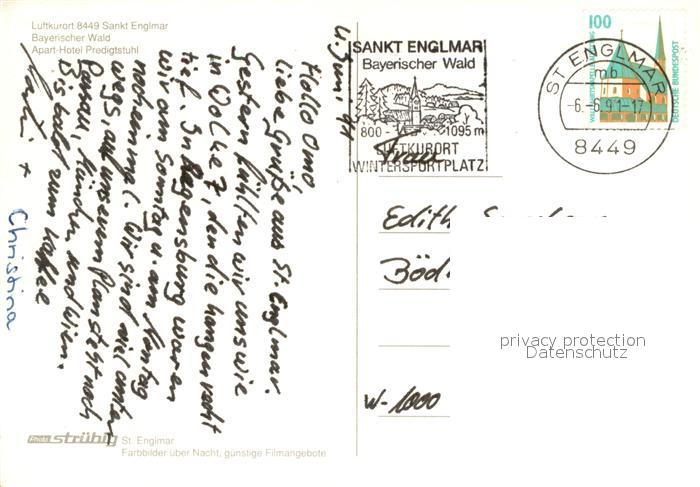 Luftkurort 8449 Sankt Englmar
Bayerischer Wald
Apart-Hotel Predigtstuhl
4. Juni 91
Hallo Omo,
liebe Grüße aus St. Englmar.
Gestern fühlten wir uns wie
in Wolke 7, den die hangen recht
tief. In Regensburg waren
wir am Sonntag u. am Montag
noch einmal. Wir sind viel unter
wegs, auf unserem Plan steht noch
Passau, München und Wien.
Bis bald zum Kaffee
+
Christina
Foto strühig St. Englmar
Farbbilder über Nacht, günstige Filmangebote
SANKT ENGLMAR
Bayerischer Wald
800 - 1095 m
LUFTKURORT
WINTERSPORTPLATZ
ST ENGLMAR
mb
-6.-6.91-17
8449
100
DEUTSCHE BUNDESPOST
Frau
Edith
Böd
W-1000
privacy protection
Datenschutz